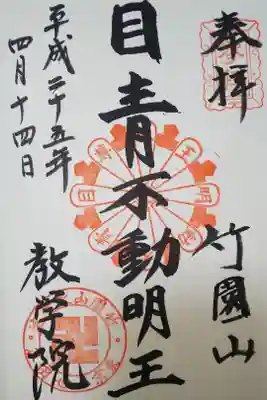 奉拝
竹園山
目青不動明王
教学院
平成二十五年
四月十四日